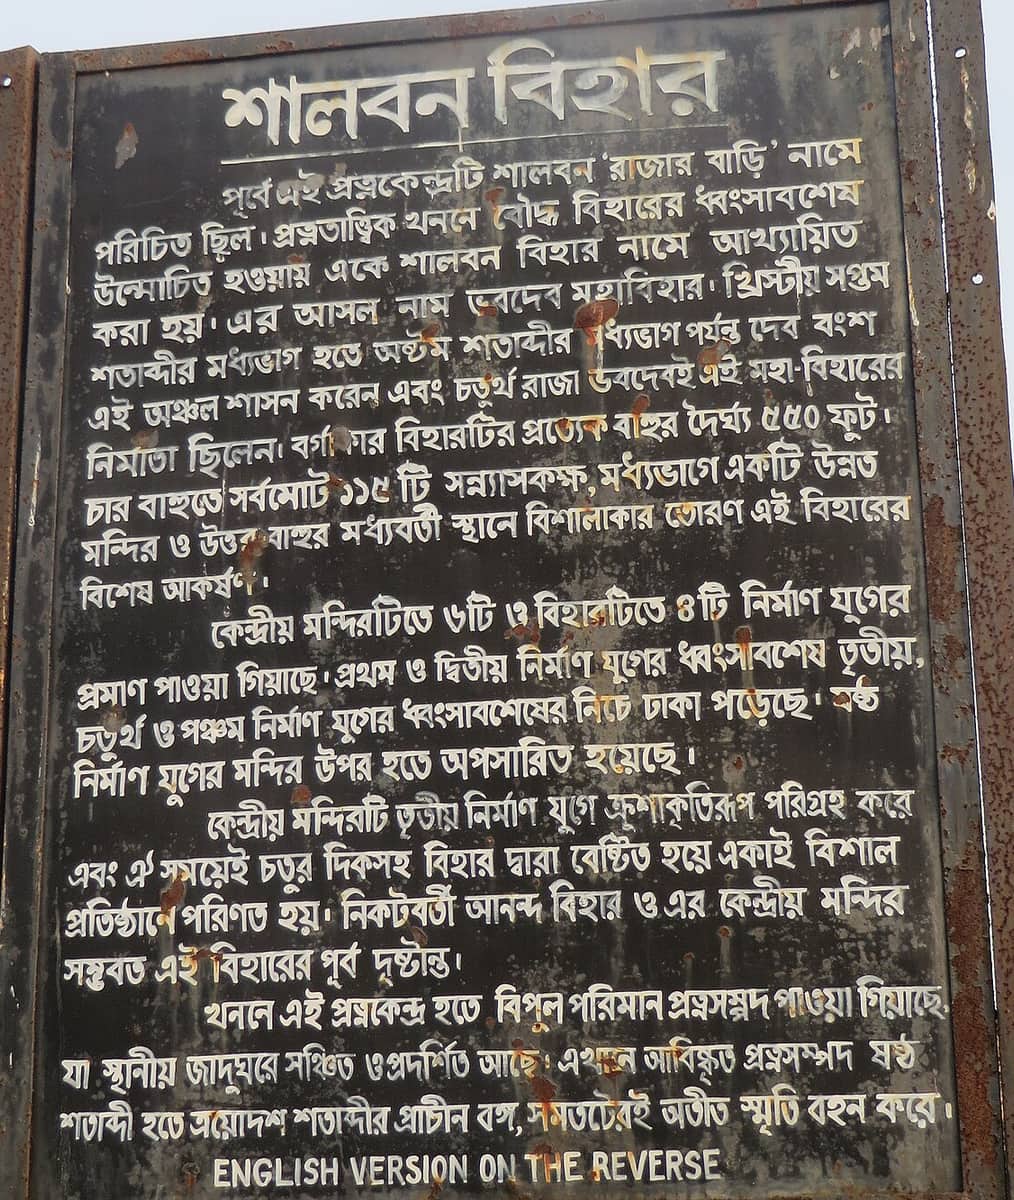 শালবন বিহার
পূর্বে এই প্রত্নকেন্দ্রটি শালবন 'রাজার বাড়ি' নামে
পরিচিত ছিল। প্রত্নতাত্ত্বিক খননে বৌদ্ধ বিহারের ধ্বংসাবশেষ
উন্মোচিত হওয়ায় একে শালবন বিহার নামে আখ্যায়িত
করা হয়। এর আসল নাম ভবদেব মহাবিহার। খ্রিস্টীয় সপ্তম
শতাব্দীর মধ্যভাগ হতে অষ্টম শতাব্দীর মধ্যভাগ পর্যন্ত দেব বংশ
এই অঞ্চল শাসন করেন এবং চতুর্থ রাজা ভবদেবই এই মহা-বিহারের
নির্মাতা ছিলেন। বর্গাকার বিহারটির প্রত্যেক বাহুর দৈর্ঘ্য ৫৫০ ফুট।
চার বাহুতে সর্বমোট ১১৫ টি সন্ন্যাসকক্ষ, মধ্যভাগে একটি উন্নত
মন্দির ও উত্তর বাহুর মধ্যবর্তী স্থানে বিশালাকার তোরণ এই বিহারের
বিশেষ আকর্ষণ।
কেন্দ্রীয় মন্দিরটিতে ৬টি ও বিহারটিতে ৪টি নির্মাণ যুগের
প্রমাণ পাওয়া গিয়াছে। প্রথম ও দ্বিতীয় নির্মাণ যুগের ধ্বংসাবশেষ তৃতীয়,
চতুর্থ ও পঞ্চম নির্মাণ যুগের ধ্বংসাবশেষের নিচে ঢাকা পড়েছে। ষষ্ঠ
নির্মাণ যুগের মন্দির উপর হতে অপসারিত হয়েছে।
কেন্দ্রীয় মন্দিরটি তৃতীয় নির্মাণ যুগে ক্রুশাকৃতিরূপ পরিগ্রহ করে
এবং ঐ সময়েই চতুর দিকসহ বিহার দ্বারা বেষ্টিত হয়ে একাই বিশাল
প্রতিষ্ঠানে পরিণত হয়। নিকটবর্তী আনন্দ বিহার ও এর কেন্দ্রীয় মন্দির
সম্ভবত এই বিহারের পূর্ব দৃষ্টান্ত।
খননে এই প্রত্নকেন্দ্র হতে বিপুল পরিমান প্রত্নসম্পদ পাওয়া গিয়াছে,
যা স্থানীয় জাদুঘরে সঞ্চিত ও প্রদর্শিত আছে। এখানে আবিষ্কৃত প্রত্নসম্পদ ষষ্ঠ
শতাব্দী হতে ত্রয়োদশ শতাব্দীর প্রাচীন বঙ্গ, সমতটেরই অতীত স্মৃতি বহন করে।
ENGLISH VERSION ON THE REVERSE